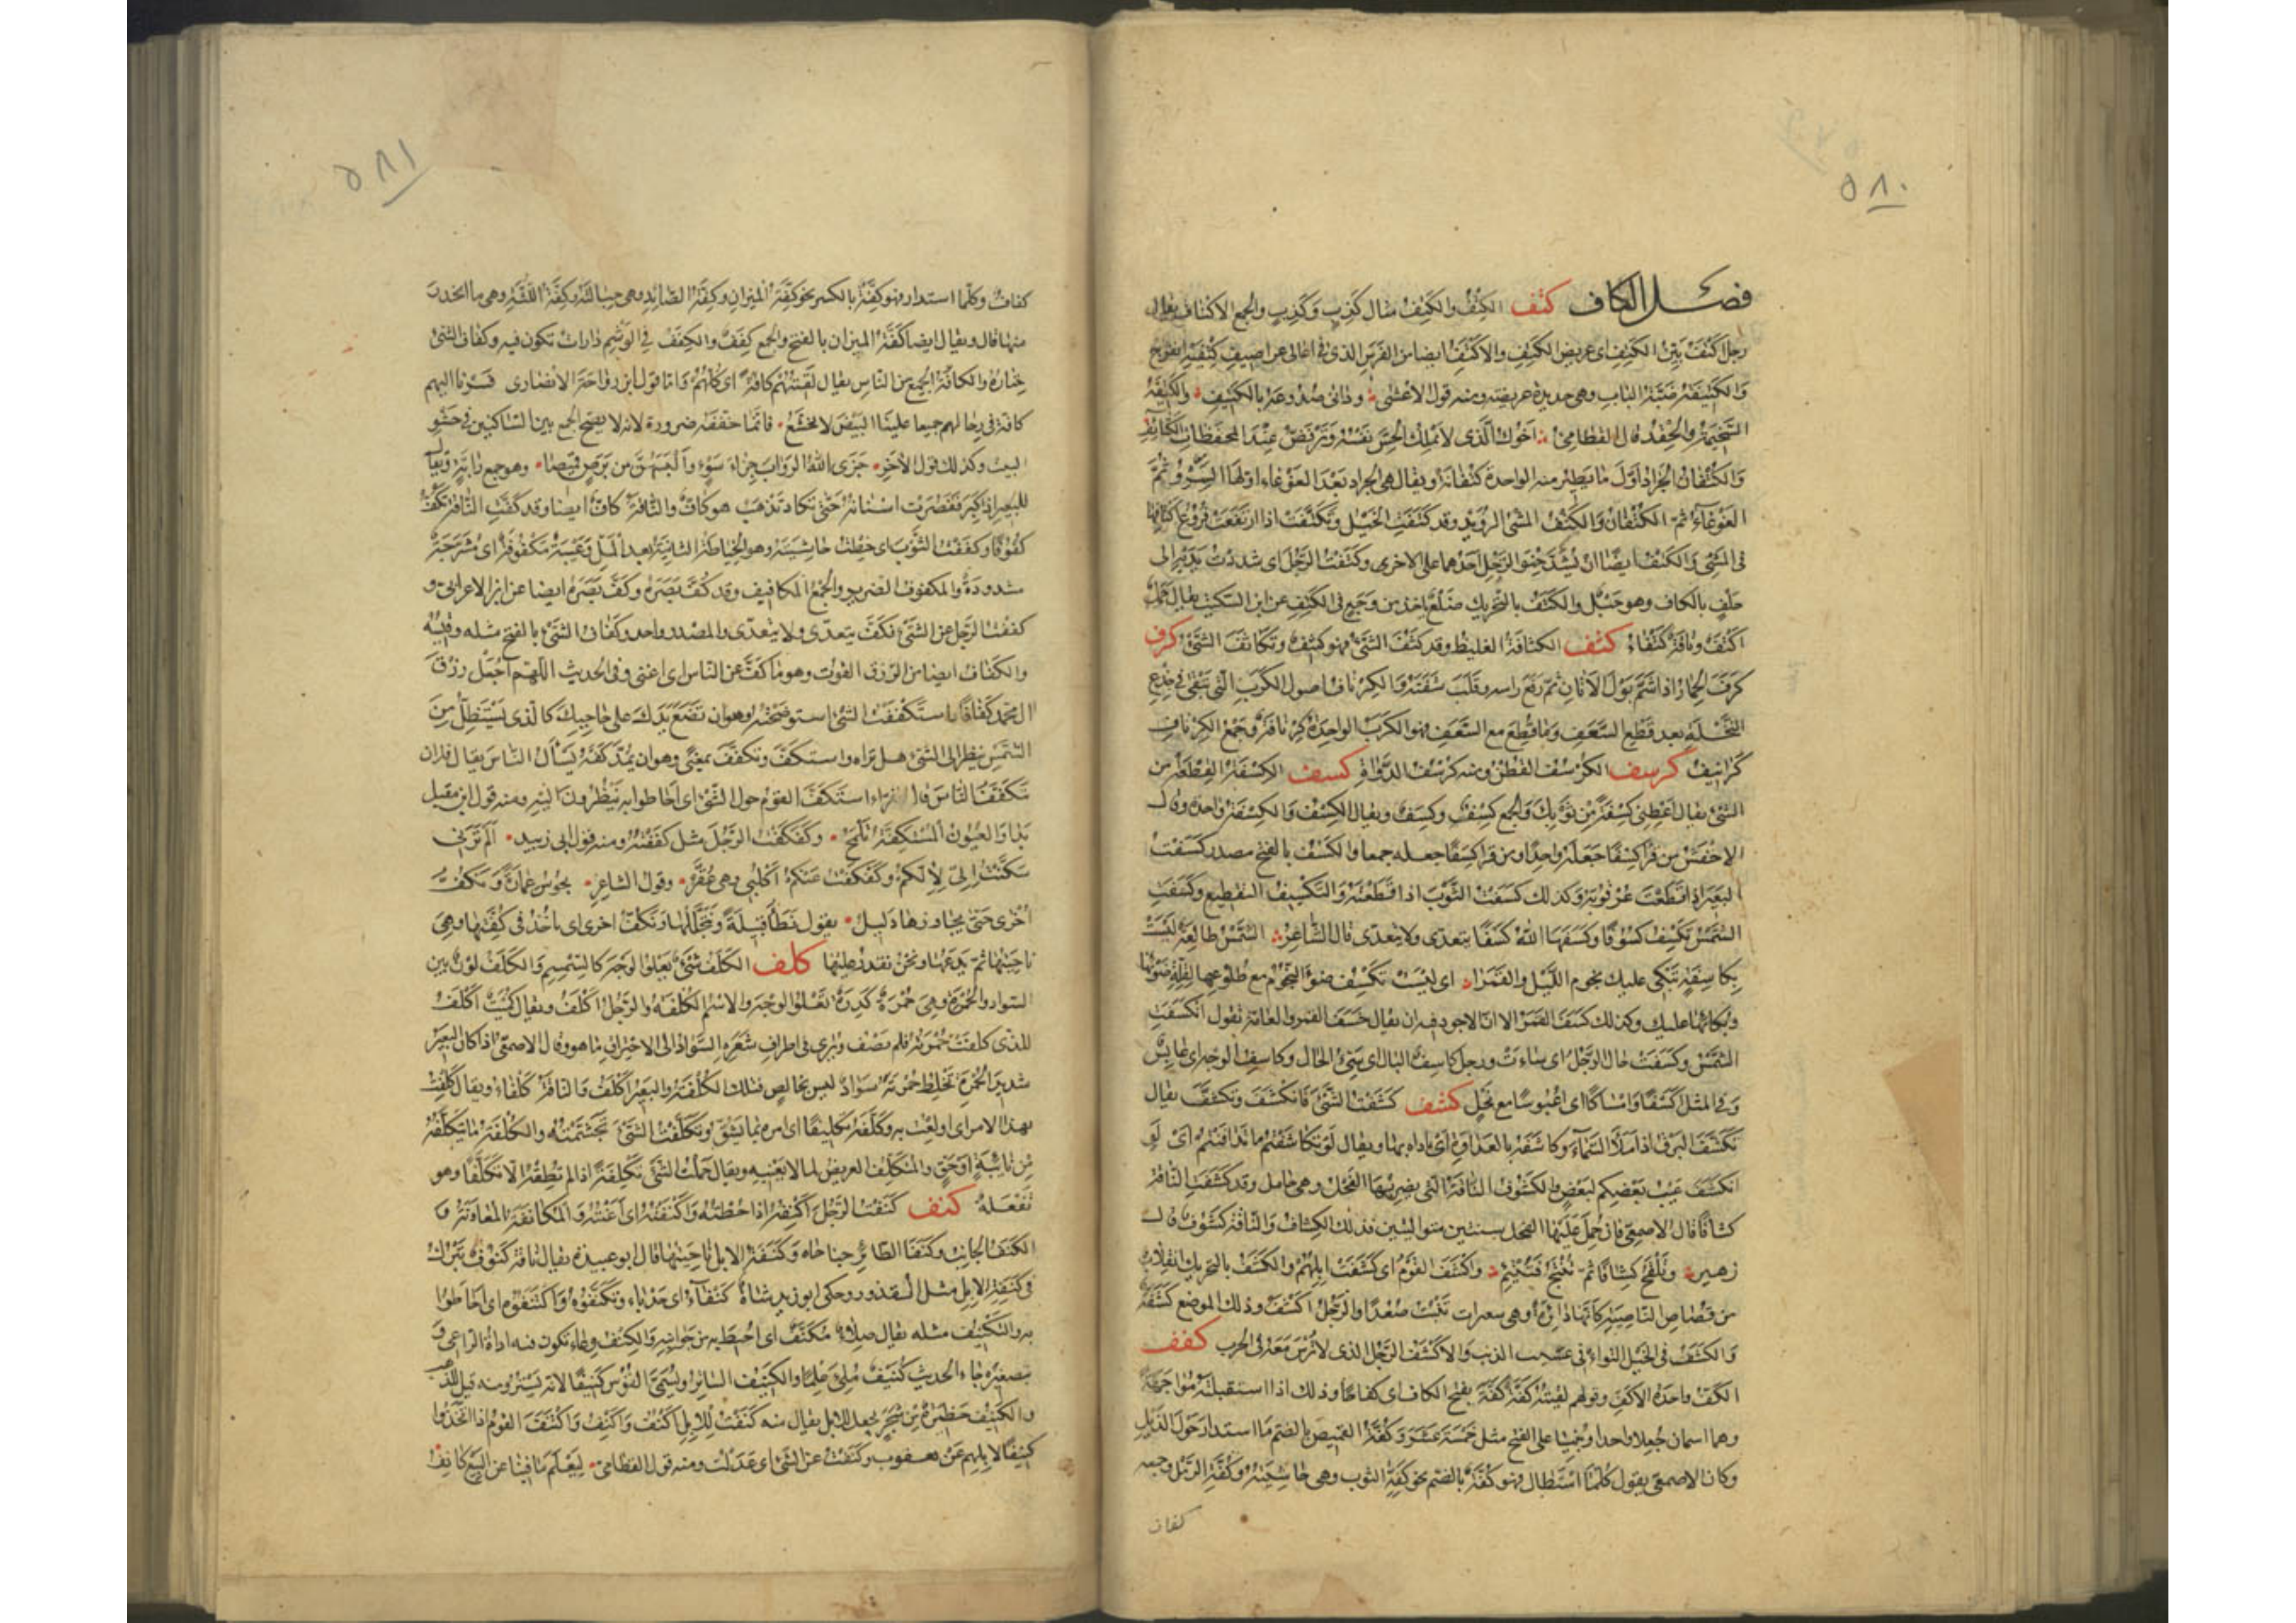 ٥٨٠
فصل الكاف كتف الكَتِفُ والكِتْفُ مثال كَذِبٍ وكِذْبٍ والجمع الاكتاف يقال
رجل اكتف بيّن الكتف اى عريض الكتف والاكتف ايضا من الفرس الذى فى اعالى غراضيف كتفيه انفراج
والكتيفة ضبّة الباب وهى حديدة عريضة ومنه قول الاعشى وذانى صدوعه بالكتيف والكتيفة
السخيمة والحقد قال القطامى اخوك الذى لا تملك الحسّ نفسه وترفضّ عند المحفظات الكتائف
والكتفان الجراد اوّل ما يطير منه الواحدة كتفانة ويقال هى الجراد بعد الغوغاء اولها السرو ثم
الغوغاء ثم الكتفان والكتف المشى الرويد وقد كتفت الخيل وتكتفت اذا ارتفعت فروع اكتافها
فى المشى والكتف ايضا ان يشد حنوا الرحل احدهما على الاخرى وكتفت الرجل اى شددت يديه الى
خلف بالكتاف وهو حبل والكتف بالتحريك ضلع ياخذ من وجع فى الكتف عن ابن السكيت يقال جمل
اكتف وناقة كتفاء كثف الكثافة الغلظ وقد كثف الشئ فهو كثيف وتكاثف الشئ كرف
كرف الحمار اذا شمّ بول الاتان ثم رفع راسه وقلب شفته والكرناف اصول الكرب التى تبقى فى جذع
النخلة بعد قطع السعف وما قطع مع السعف فهو الكرب الواحدة كرنافة وجمع الكرناف
كرانيف كرسف الكرسف القطن ومنه كرسف الدواة كسف الكسفة القطعة من
الشئ يقال اعطنى كسفة من ثوبك والجمع كسف وكسف ويقال الكسف والكسفة واحد وقال
الاخفش من قرا كسفا جعله واحدا ومن قرا كسفا جعله جمعا والكسف بالفتح مصدر كسفت
البعير اذا قطعت عرقوبه وكذلك كسفت الثوب اذا قطعته والتكسيف التقطيع وكسفت
الشمس تكسف كسوفا وكسفها الله كسفا يتعدى ولا يتعدى قال الشاعر الشمس طالعة ليست
بكاسفة تبكى عليك نجوم الليل والقمرا اى ليست تكسف ضوء النجوم مع طلوعها لقلة ضوئها
وبكائها عليك وكذلك كسف القمر الا ان الاجود فيه ان يقال خسف القمر والعامة تقول انكسفت
الشمس وكسفت حال الرجل اى ساءت ورجل كاسف البال اى سيئ الحال وكاسف الوجه اى عابس
وفى المثل اكسفا وامساكا اى اعبوسا مع بخل كشف كشفت الشئ فانكشف وتكشف يقال
تكشف البرق اذا ملأ السماء وكاشفه بالعداوة اى باداه بها ويقال لو تكاشفتم ما تدافنتم اى لو
انكشف عيب بعضكم لبعض والكشوف الناقة التى يضربها الفحل وهى حامل وقد كشفت الناقة
كشافا قال الاصمعى فان حمل عليها الفحل سنتين متواليتين فذلك الكشاف والناقة كشوف قال
زهير وتلقح كشافا ثم تنتج فتتئم واكشف القوم اى كشفت ابلهم والكشف بالتحريك انقلاب
من قصاص الناصية كانها دائرة وهى شعرات تنبت صعدا والرجل اكشف وذلك الموضع كشفة
والكشف فى الخيل التواء فى عسيب الذنب والاكشف الرجل الذى لا ترس معه فى الحرب كفف
الكف واحدة الاكف وقولهم لقيته كفة كفة بفتح الكاف اى كفاحا وذلك اذا استقبلته مواجهة
وهما اسمان جعلا واحدا وبنيا على الفتح مثل خمسة عشر وكفة القميص بالضم ما استدار حول الذيل
وكان الاصمعى يقول كلما استطال فهو كفة بالضم نحو كفة الثوب وهى حاشيته وكفة الرمل وجمعه
كفاف
٥٨١
كفاف وكلما استدار فهو كفة بالكسر نحو كفة الميزان وكفة الصائد وهى حبالته وكفة اللثة وهى ما انحدر
منها قال ويقال ايضا كفة الميزان بالفتح والجمع كفف والكفف فى الوشم دارات تكون فيه وكفاف الشئ
خياره والكافة الجميع من الناس يقال لقيتهم كافة اى كلهم واما قول ابن رواحة الانصارى فسرنا اليهم
كافة فى رحالهم جميعا علينا البيض لا نخشع فانما خففه ضرورة لانه لا يصح الجمع بين الساكنين فى حشو
البيت وكذلك قول الاخر جزى الله الروابّ جزاء سوء والبسهن من برص قميصا وهو جمع رابة ويقال
للبعير اذا كبر فقصرت اسنانه حتى تكاد تذهب هو كافّ والناقة كافّ ايضا وقد كفت الناقة تكف
كفوفا وكففت الثوب اى خطت حاشيته وهو الخياطة الثانية بعد الشلّ وعيبة مكفوفة اى مشرجة
مشدودة والمكفوف الضرير والجمع المكافيف وقد كفّ بصره وكفّ بصره ايضا عن ابن الاعرابى و
كففت الرجل عن الشئ فكفّ يتعدى ولا يتعدى والمصدر واحد وكفاف الشئ بالفتح مثله وقيسه
والكفاف ايضا من الرزق القوت وهو ما كفّ عن الناس اى اغنى وفى الحديث اللهم اجعل رزق
ال محمد كفافا واستكففت الشئ استوضحته وهو ان تضع يدك على حاجبك كالذى يستظل من
الشمس ينظر الى الشئ هل تراه واستكف وتكفف بمعنى وهو ان يمد كفه يسأل الناس يقال فلان
يتكفف الناس قال الفراء استكف القوم حول الشئ اى احاطوا به ينظرون اليه ومنه قول ابن مقبل
بدا والعيون المستكفة تلمح وكفكفت الرجل مثل كففته ومنه قول ابى زبيد الم ترنى
سكنت إلىّ لإلكم وكفكفت عنكم اكلبى وهى عقّر وقول الشاعر نجوس عمارة ونكف
اخرى حتى يجاوزها دليل يقول نطأ قبيلة ونتخللها ونكف اخرى اى ناخذ فى كفتها وهى
ناحيتها ثم ندعها ونحن نقدر عليها كلف الكلف شئ يعلو الوجه كالسمسم والكلف لون بين
السواد والحمرة وهى حمرة كدرة تعلو الوجه والاسم الكلفة والرجل اكلف ويقال كميت اكلف
للذى كلفت حمرته فلم تصف ويرى فى اطراف شعره السواد الى الاحتراق ما هو وقال الاصمعى اذا كان البعير
شديد الحمرة تخلط حمرته سواد ليس بخالص فتلك الكلفة والبعير اكلف والناقة كلفاء ويقال كلفت
بهذا الامر اى اولعت به وكلفه تكليفا اى امره بما يشق وتكلفت الشئ تجشمته والكلفة ما تتكلفه
من نائبة او حق والمتكلف العريض لما لا يعنيه ويقال حملت الشئ تكلفة اذا لم تطقه الا تكلفا وهو
تفعلة كنف كنفت الرجل اكنفه اذا حطته واكنفته اى اعنته والمكانفة المعاونة و
الكنف الجانب وكنفا الطائر جناحاه وكنفة الابل ناحيتها قال ابو عبيدة يقال ناقة كنوف تبرك
فى كنفة الابل مثل القذور وحكى ابو زيد شاة كنفاء اى حدباء وتكنفوه واكتنفوه اى احاطوا
به والتكنيف مثله يقال صلاء مكنف اى احيط به من جوانبه والكنف وعاء تكون فيه اداة الراعى و
بتصغيره جاء الحديث كنيف ملئ علما والكنيف الساتر ويسمى الترس كنيفا لانه يستر ومنه قيل للمذهب
والكنيف حظيرة من شجر يجعل للابل يقال منه كنفت للابل اكنف واكنف واكتنف القوم اذا اتخذوا
كنيفا لابلهم عن يعقوب وكنفت عن الشئ اى عدلت ومنه قول القطامى ليعلم ما فينا عن البيع كانف